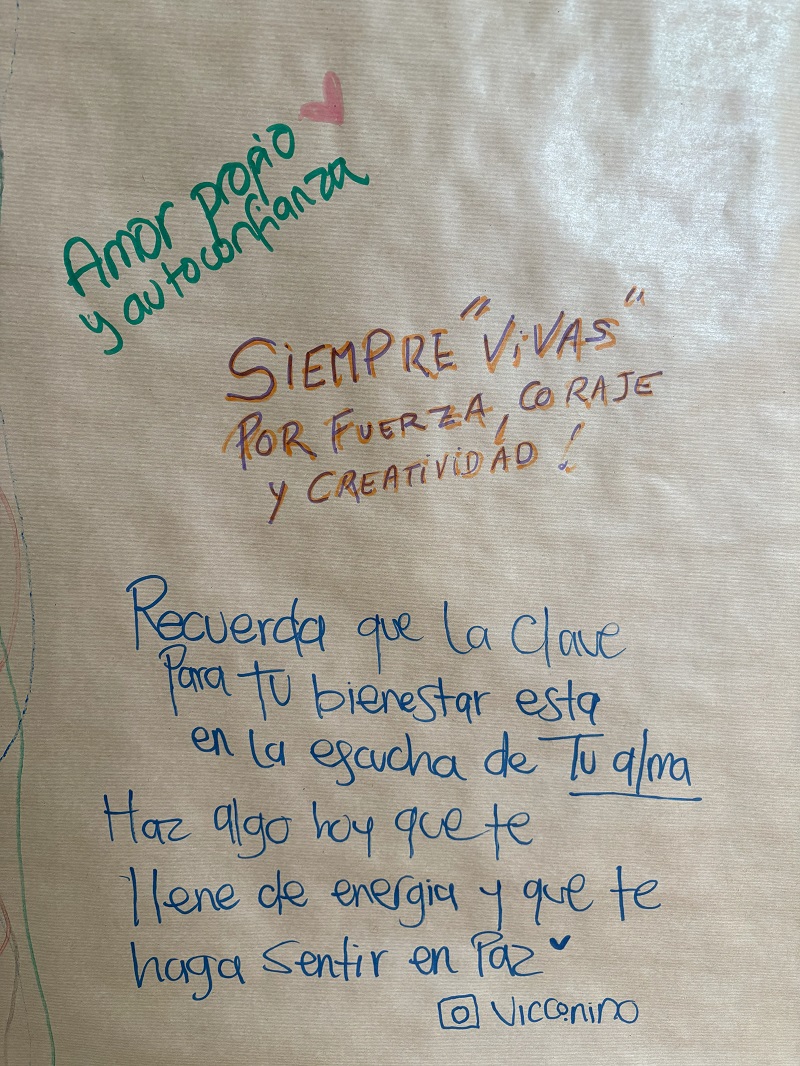 Amor propio
y autoconfianza
SIEMPRE "ViVAS"
POR FUERZA, CORAJE
y CREATIVIDAD!
Recuerda que la clave
Para TU bienestar esta
en la escucha de Tu alma
Haz algo hoy que te
llene de energia y que te
haga sentir en Paz